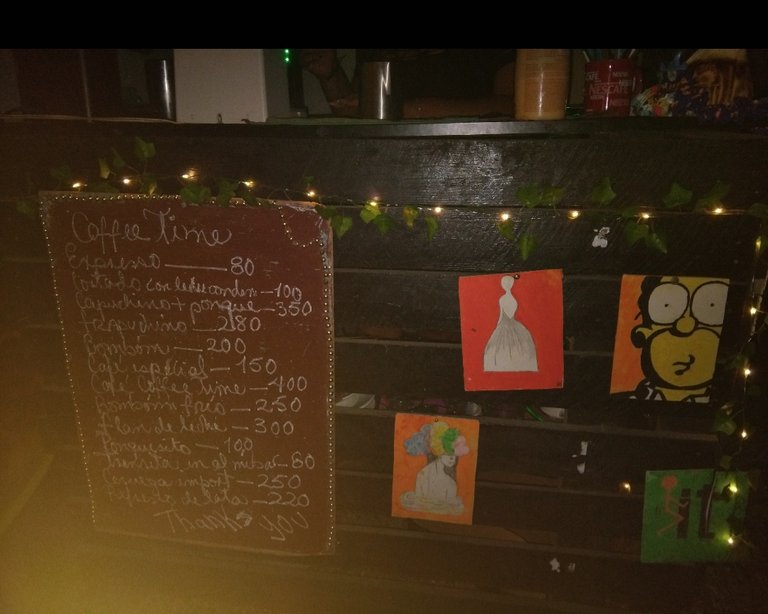 CAFÉ
NESCAFÉ
Coffee Time
Expresso 80
Cortado con leche conden - 100
Capuchino + ponque - 350
Frapuchino 280
Bombóm - 200
Café especial - 150
Café Coffee Time - 400
Bombóm frio - 250
Flan de leche - 300
Ponquesito - 100
en almibar - 80
Cerveza import - 250
Refresco de lata - 220
Thank you
it